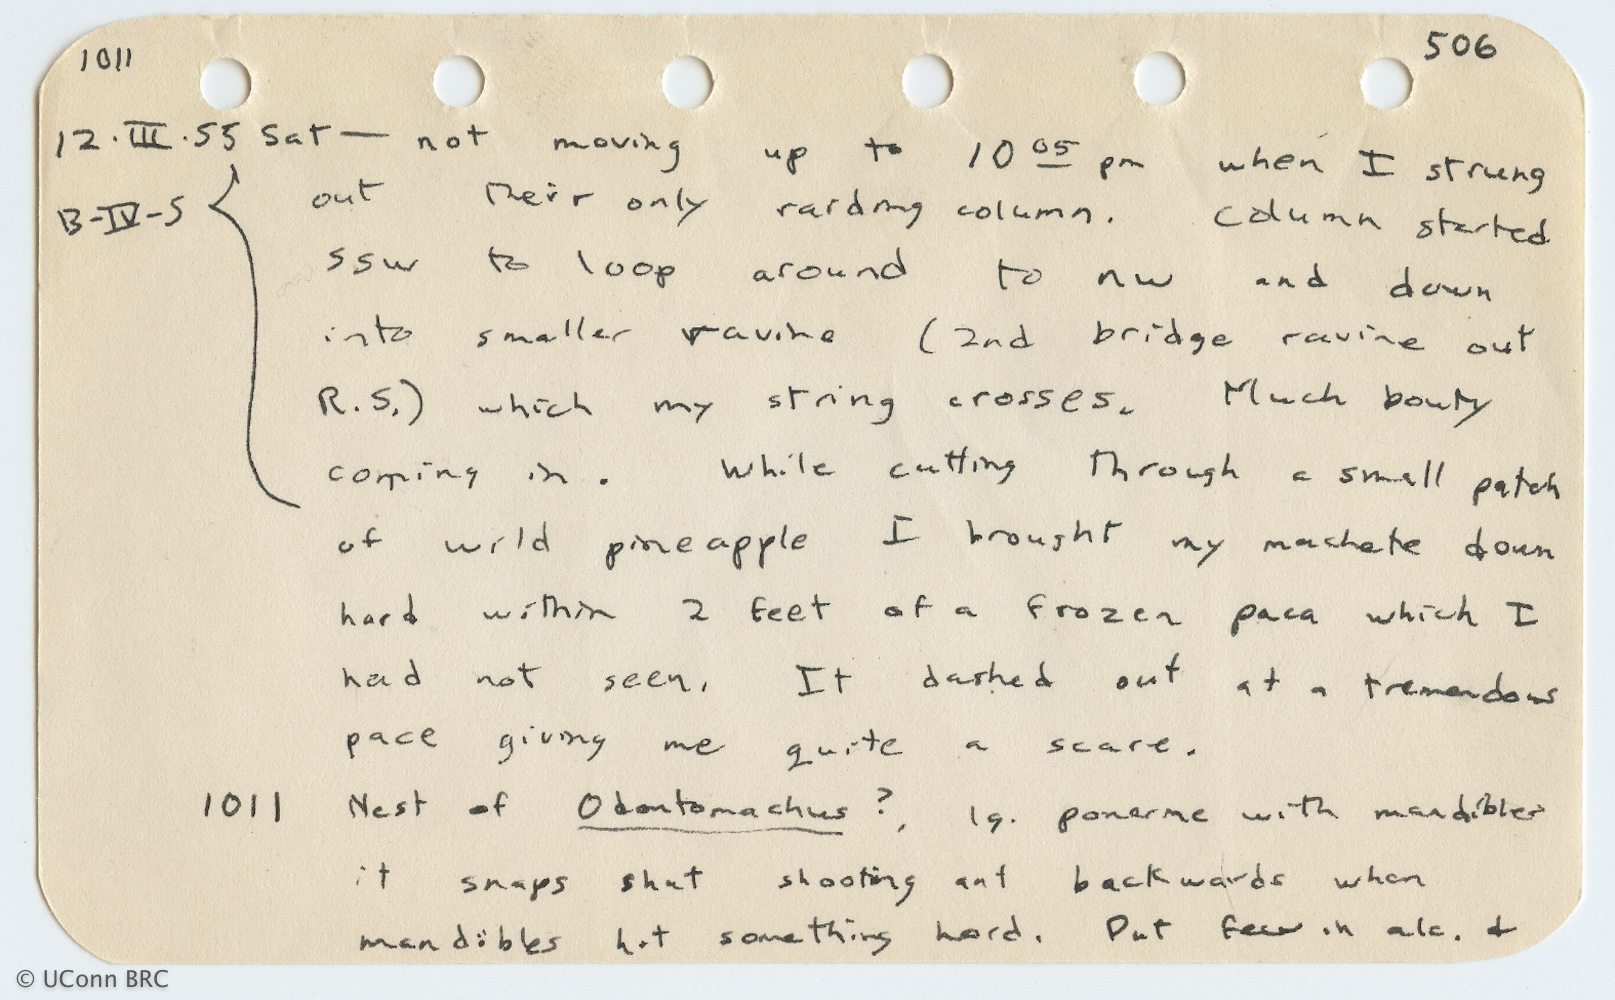 1011 506
12.III.55 Sat — not moving up to 10 05 pm when I strung
B-IV-5 out their only raiding column. Column started
SSW to loop around to NW and down
into smaller ravine (2nd bridge ravine out
R.S.) which my string crosses. Much bouty
coming in. While cutting through a small patch
of wild pineapple I brought my machete down
hard within 2 feet of a frozen paca which I
had not seen. It dashed out at a tremendous
pace giving me quite a scare.
1011 Nest of Odontomachus?, lg. ponerine with mandibles
it snaps shut shooting ant backwards when
mandibles hit something hard. Put few in alc. &
© UConn BRC